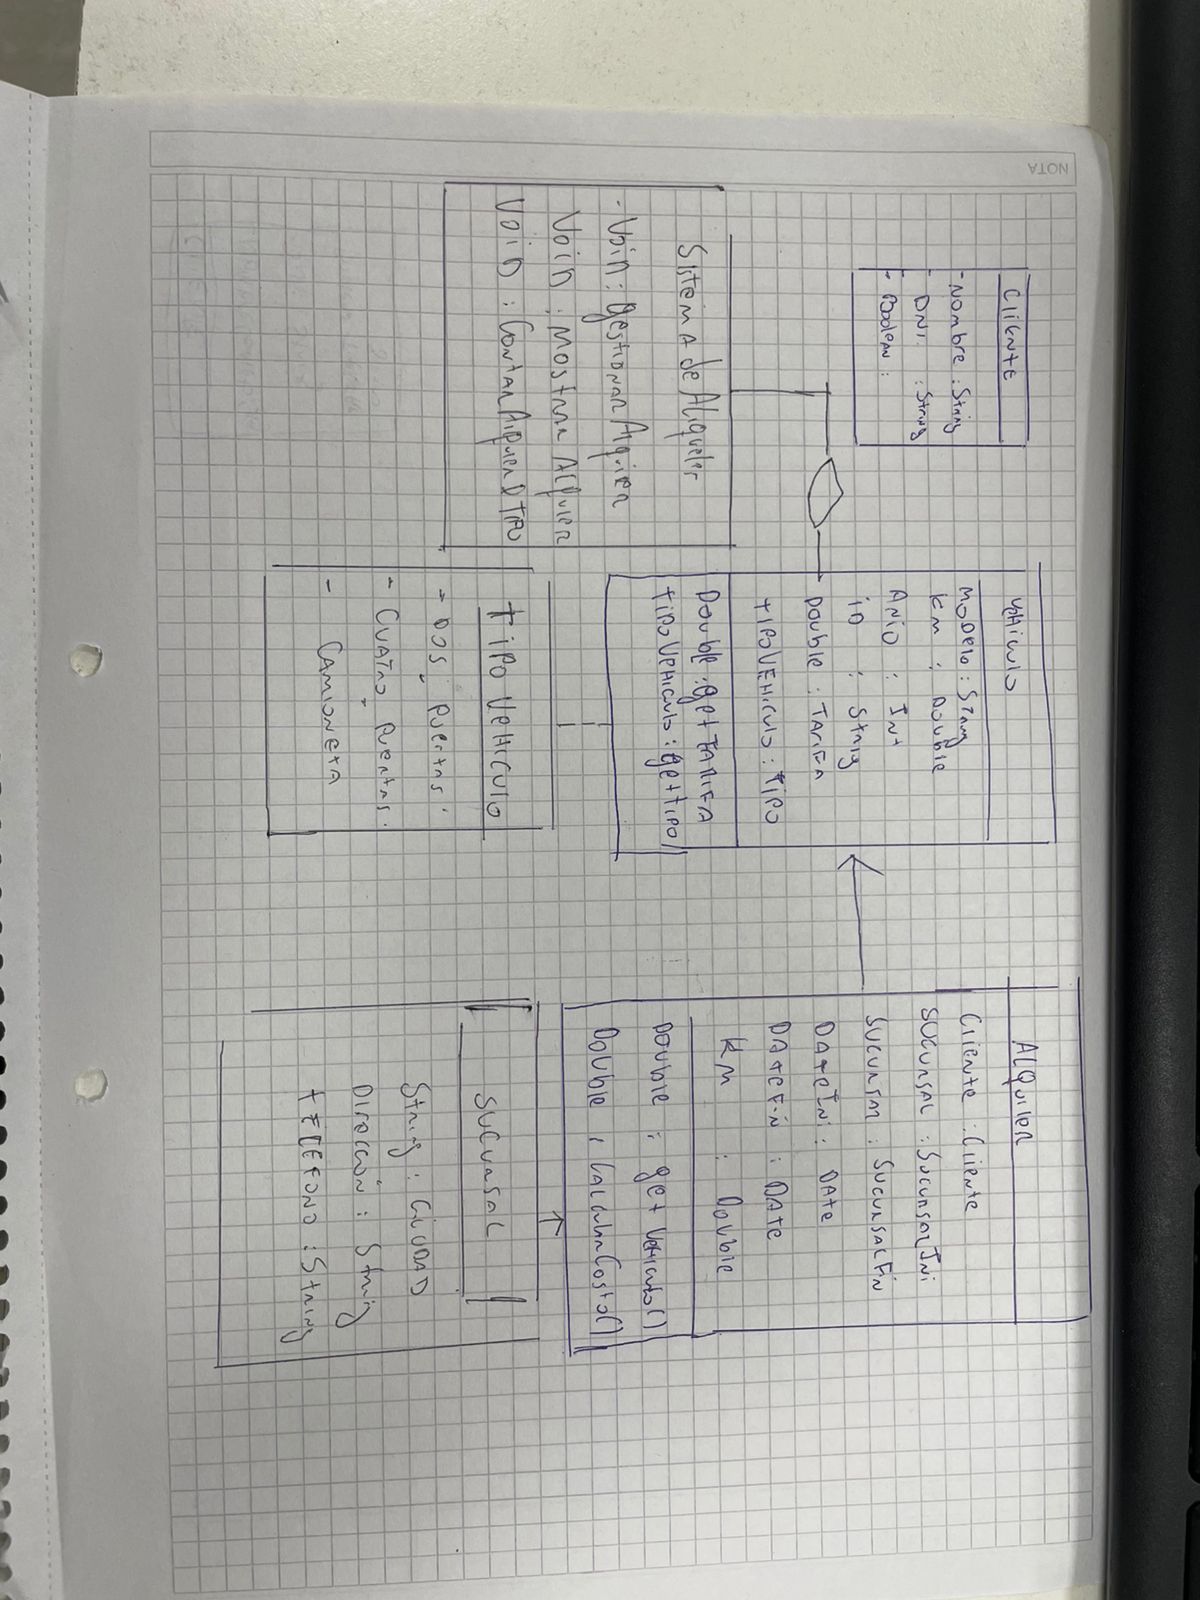 NOTA
Cliente
- Nombre : String
- DNI : String
- Boolean :
Sistema de Alquiler
- Void : gestionar Alquiler
Void : mostrar Alquiler
Void : Contar Alquiler D Tipo
Vehiculo
Modelo : String
Km : Double
Anio : Int
iD : String
Double : Tarifa
tipoVehiculo : tipo
Double : get Tarifa
tipoVehiculo : get tipo
tipo Vehiculo
- Dos, Puertas.
- Cuatro, Puertas.
- Camioneta
Alquiler
Cliente : Cliente
Sucursal : SucursalIni
Sucursal : SucursalFin
DateIni : Date
DateFin : Date
Km : Double
Double : get Vehiculo()
Double : CalcularCosto()
Sucursal
String : Ciudad
Direccion : String
telefono : String